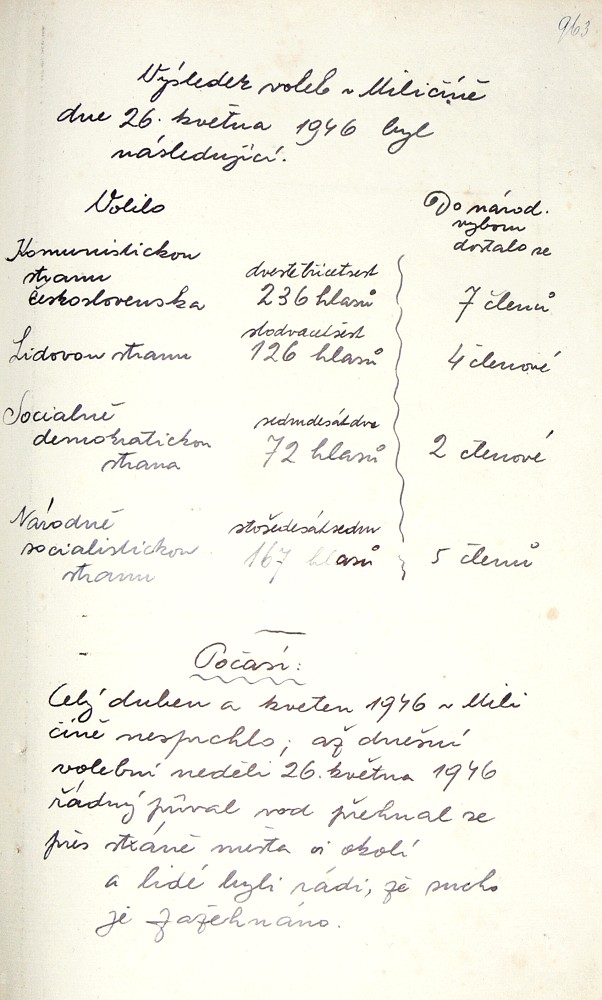 963
Výsledek voleb v Miličíně
dne 26. května 1946 byl
následující.
Volilo
Do národ.
výboru
dostalo se
Komunistickou
stranu
československa
dvestětřicetšest
236 hlasů
7 členů
Lidovou stranu
stodvacetšest
126 hlasů
4 členové
Socialně
demokratickou
strana
sedmdesátdva
72 hlasů
2 členové
Národně
socialistickou
stranu
stošedesátsedm
167 hlasů
5 členů
Počasí:
Celý duben a květen 1946 v Mili
číně nesprchlo; až dnešní
volební neděli 26. května 1946
řádný příval vod přehnal se
přes stráně města i okolí
a lidé byli rádi, že sucho
je zažehnáno.